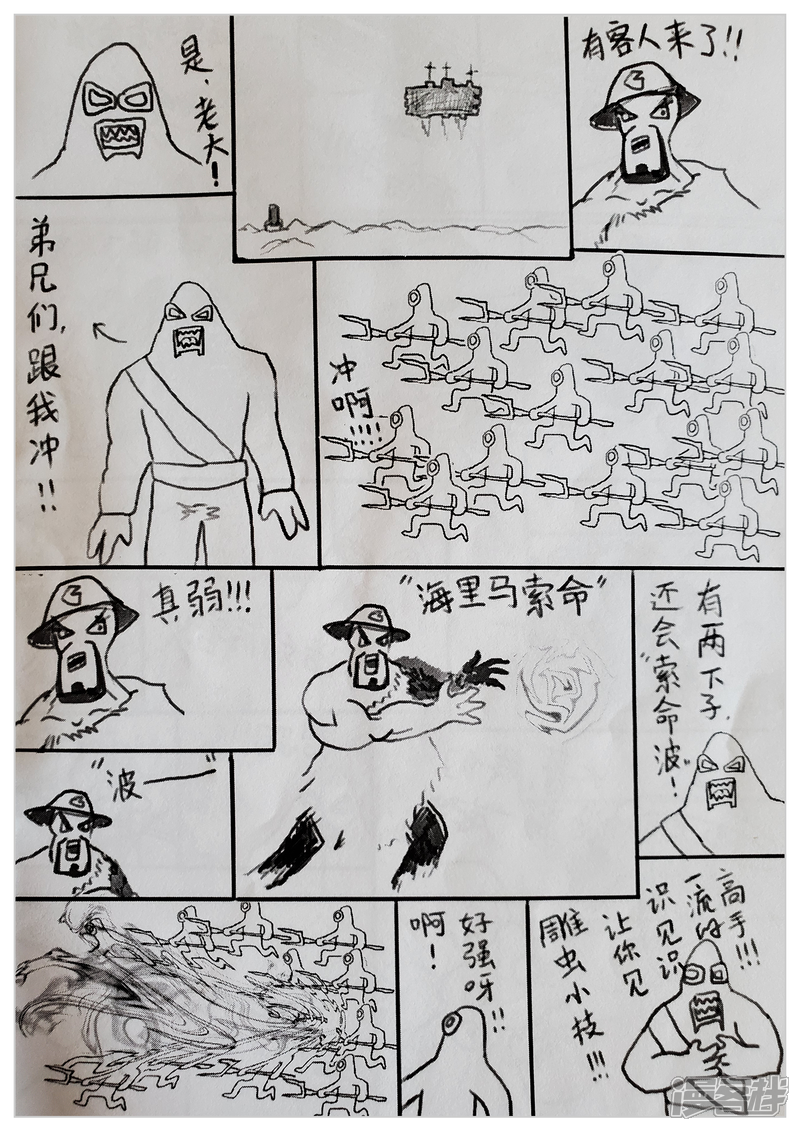 是、老大！
有客人来了!!
弟兄们,跟我冲!!
冲啊!!!!
真弱!!!
"海里马索命"
有两下子,
还会"索命波"!
"波——"
啊！
好强呀!!
雕虫小技!!!
让你见
识见识
一流的
高手!!!
漫客栈